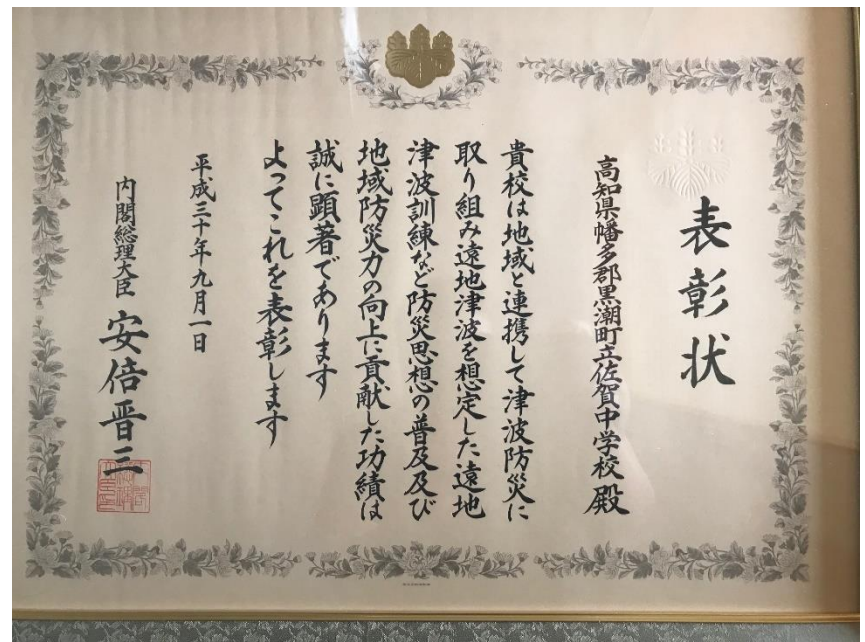 表彰状
高知県幡多郡黒潮町立佐賀中学校殿
貴校は地域と連携して津波防災に
取り組み遠地津波を想定した遠地
津波訓練など防災思想の普及及び
地域防災力の向上に貢献した功績は
誠に顕著であります
よってこれを表彰します
平成三十年九月一日
内閣総理大臣 安倍晋三